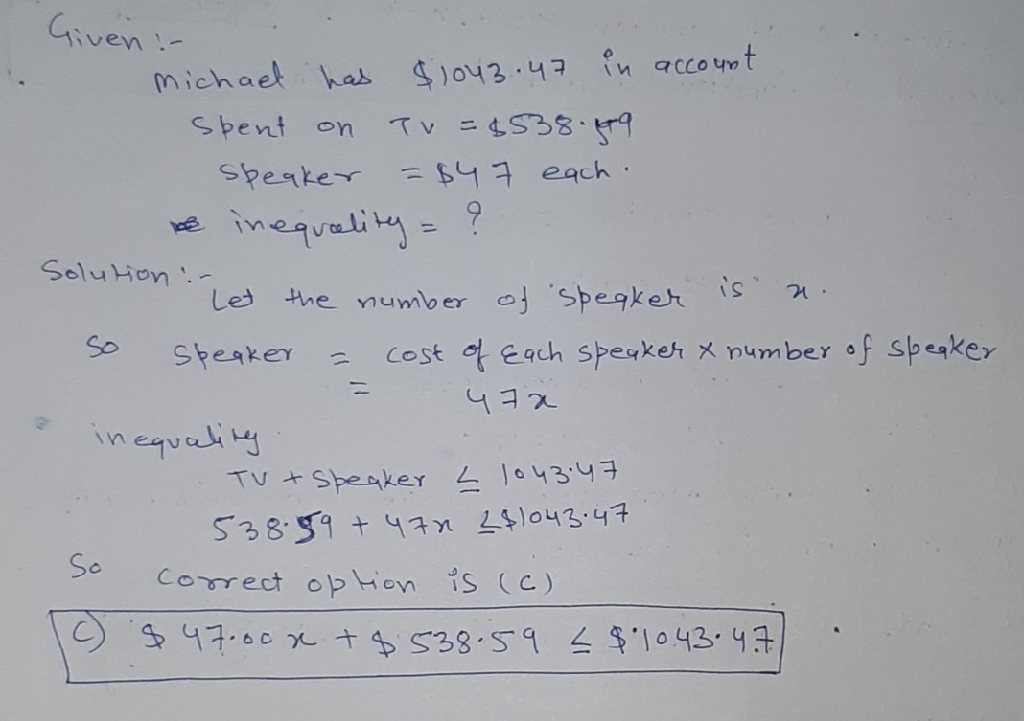 Given :-
Michael has $1043.47 in account
Spent on TV = $538.59
Speaker = $47 each.
inequality = ?
Solution :-
Let the number of speaker is x.
So speaker = cost of Each speaker x number of speaker
= 47x
inequality
TV + Speaker ≤ 1043.47
538.59 + 47x ≤ $1043.47
So correct option is (C)
C) $ 47.00 x + $ 538.59 ≤ $1043.47